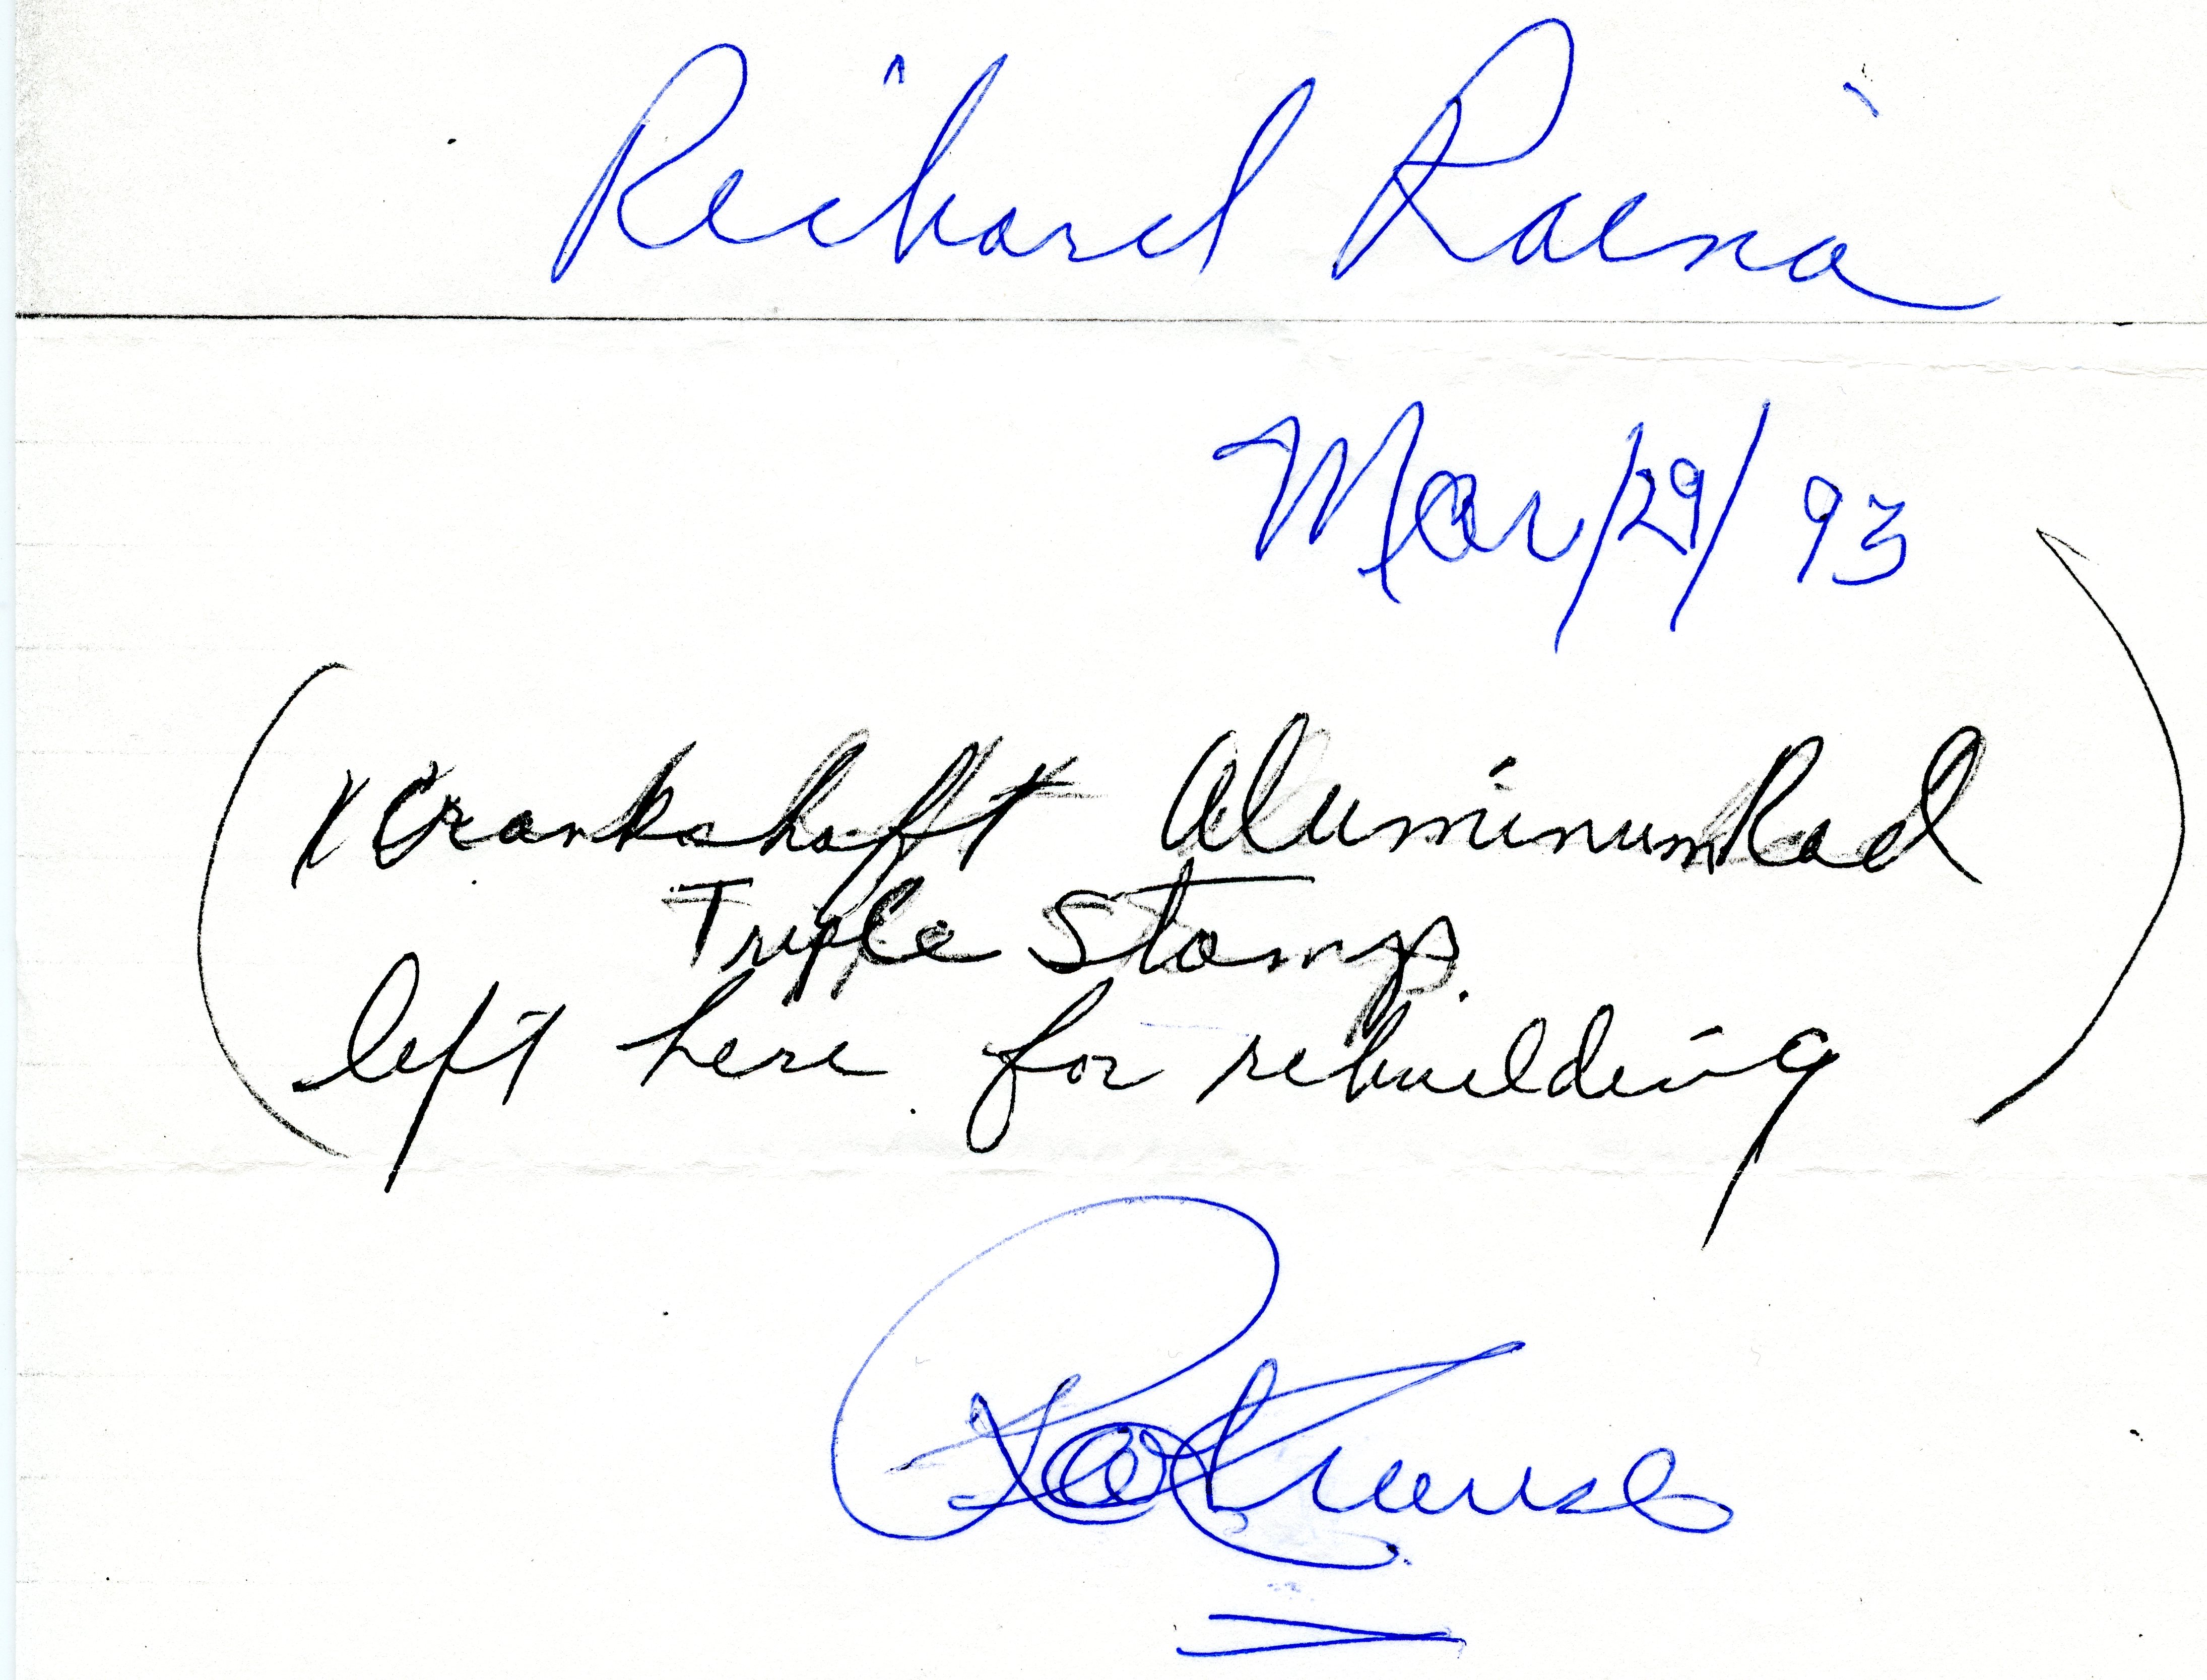 Richard Raina
Mar/29/93
(1 Crankshaft Aluminum Rod
Triple Stamps.
left here for rebuilding)
Krause